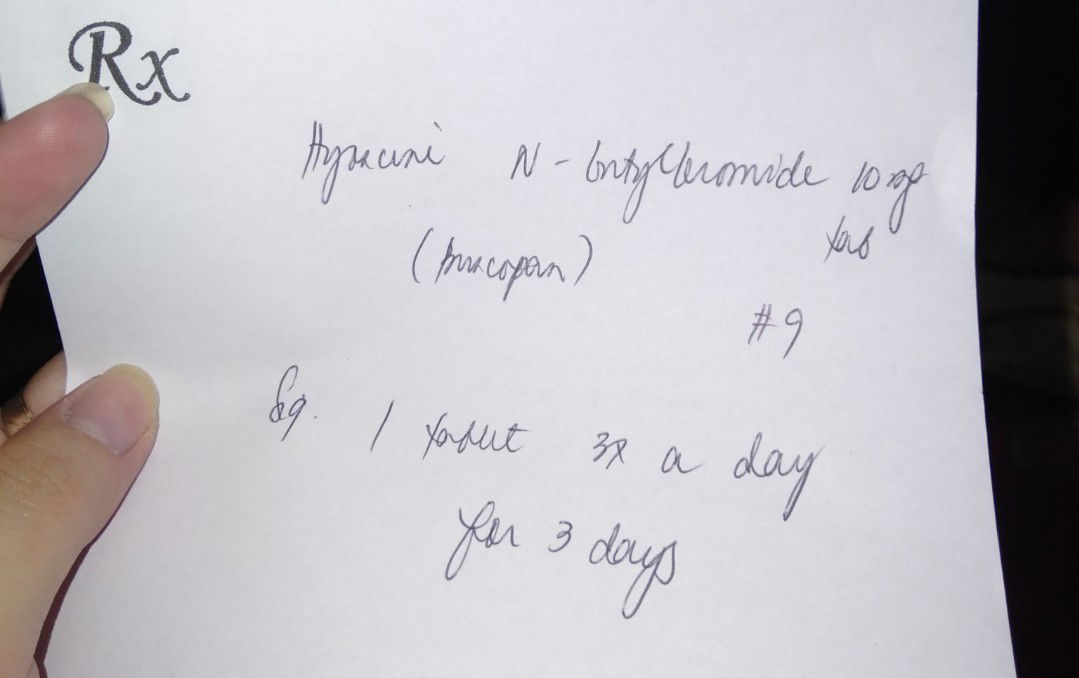 Rx
Hyoscine N-butylbromide 10 mg
tab
(buscopan)
#9
Sig. 1 tablet 3x a day
for 3 days